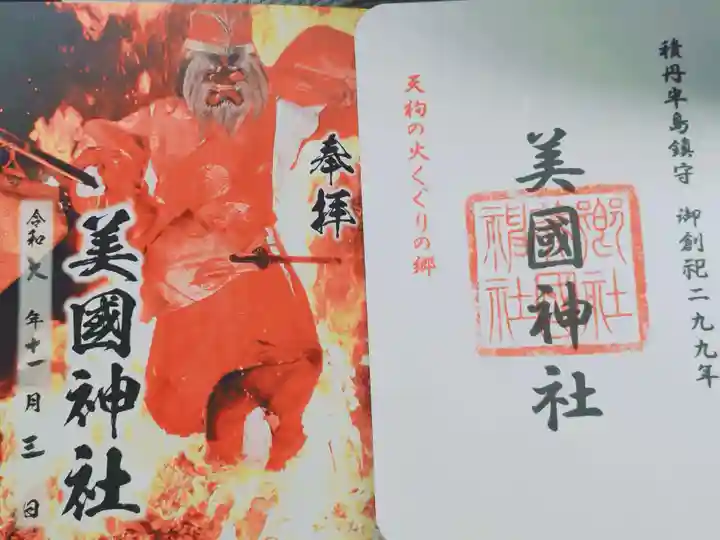 積丹半島鎮守 御創祀二九九年
美國神社
天狗の火くぐりの郷
奉拝
美國神社
令和六年十一月三日